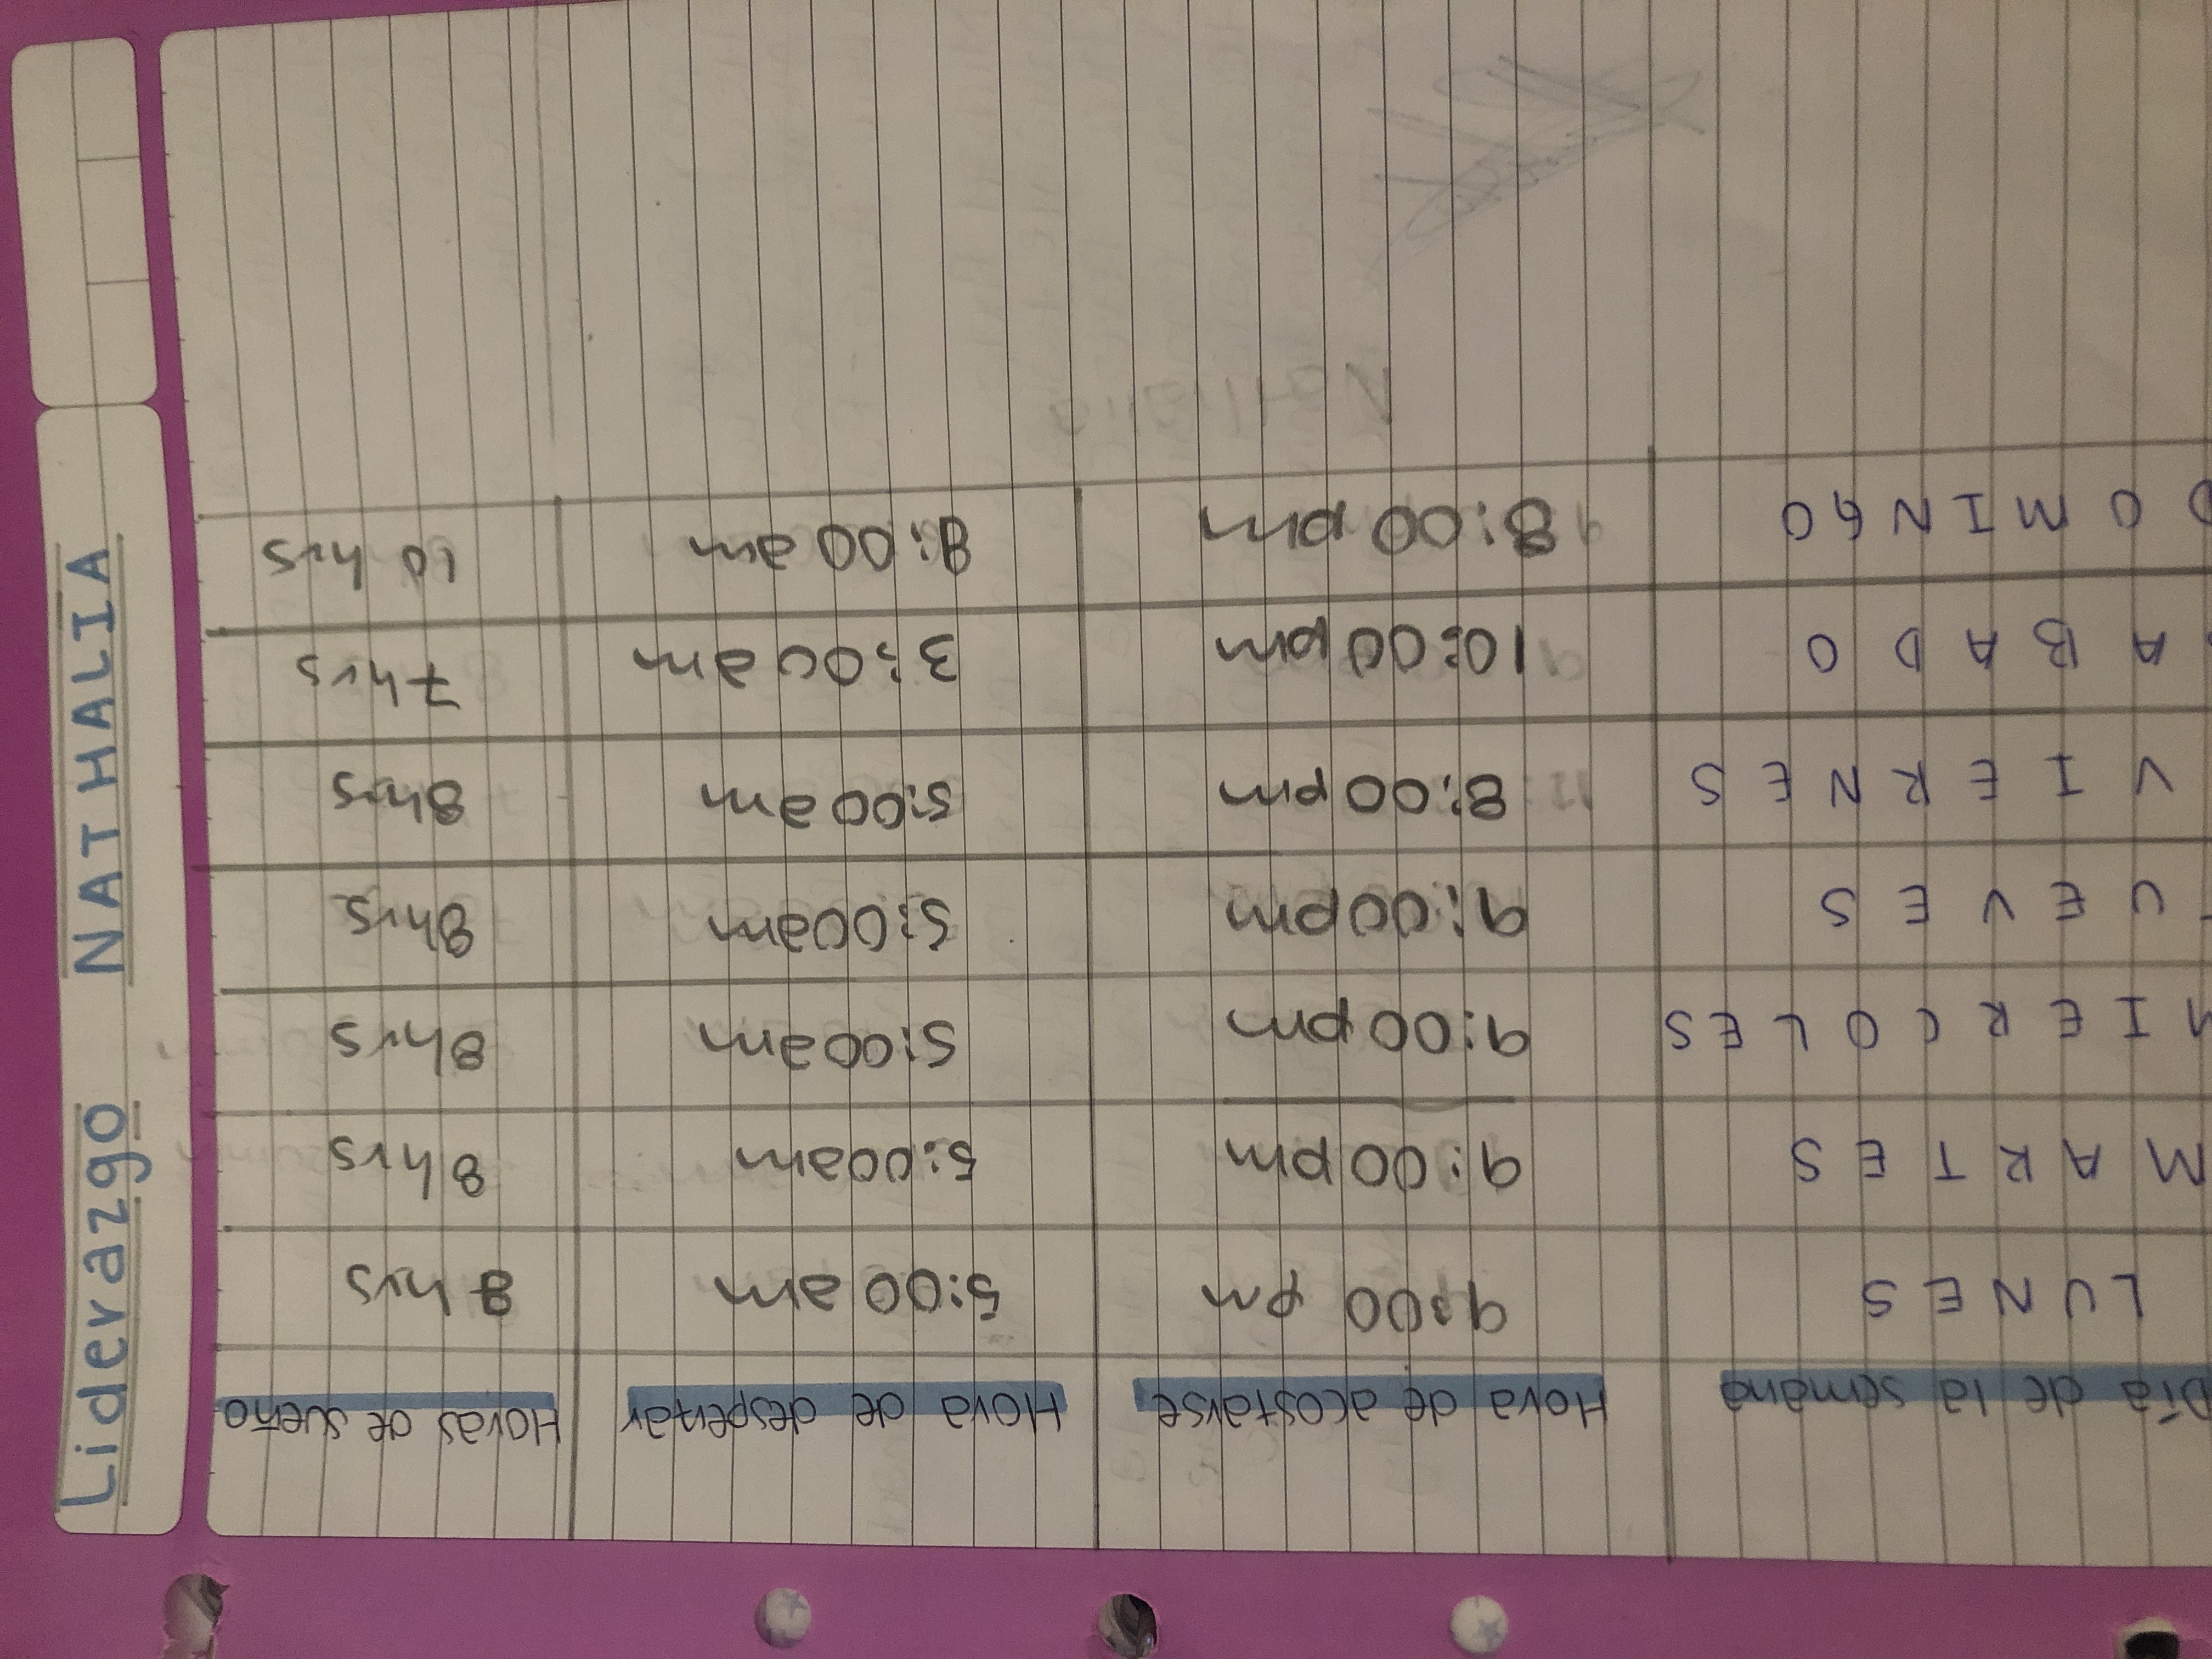 Liderazgo NATHALIA
Día de la semana Hora de acostarse Hora de despertar Horas de sueño
LUNES 9:00 pm 5:00 am 8 hrs
MARTES 9:00pm 5:00am 8hrs
MIERCOLES 9:00pm 5:00am 8hrs
JUEVES 9:00pm 5:00am 8hrs
VIERNES 8:00pm 5:00am 8hrs
SABADO 10:00pm 3:00am 7hrs
DOMINGO 8:00pm 8:00am 10 hrs
Nathalia